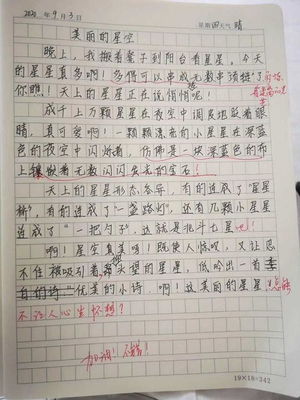 2020年9月3日 星期四天气晴
美丽的星空
晚上，我搬着凳子到阳台看星星，今天
的星星真多啊！多得可以串成无数串项链了
你瞧！天上的星星正在说悄悄呢！
成千上万颗星星在夜空中调皮地眨着眼
睛，真可爱啊！一颗颗漂亮的小星星在深蓝
色的夜空中闪烁着，仿佛是一块深蓝色的布
上镶嵌着无数闪闪发光的宝石！
天上的星星形态各异，有的连成了“星星
桥”，有的连成了“一盏路灯”，还有几颗小星星
连成了“一把勺子”，这就是北斗七星吧！
啊！星空真美呀！既使人惊叹，又让忍
不住被吸引着去望的星星，低吟出一首
“优美的小诗”啊！这美丽的星星！怎能
不让人心生怀想？
加油！不错！
19×18=342